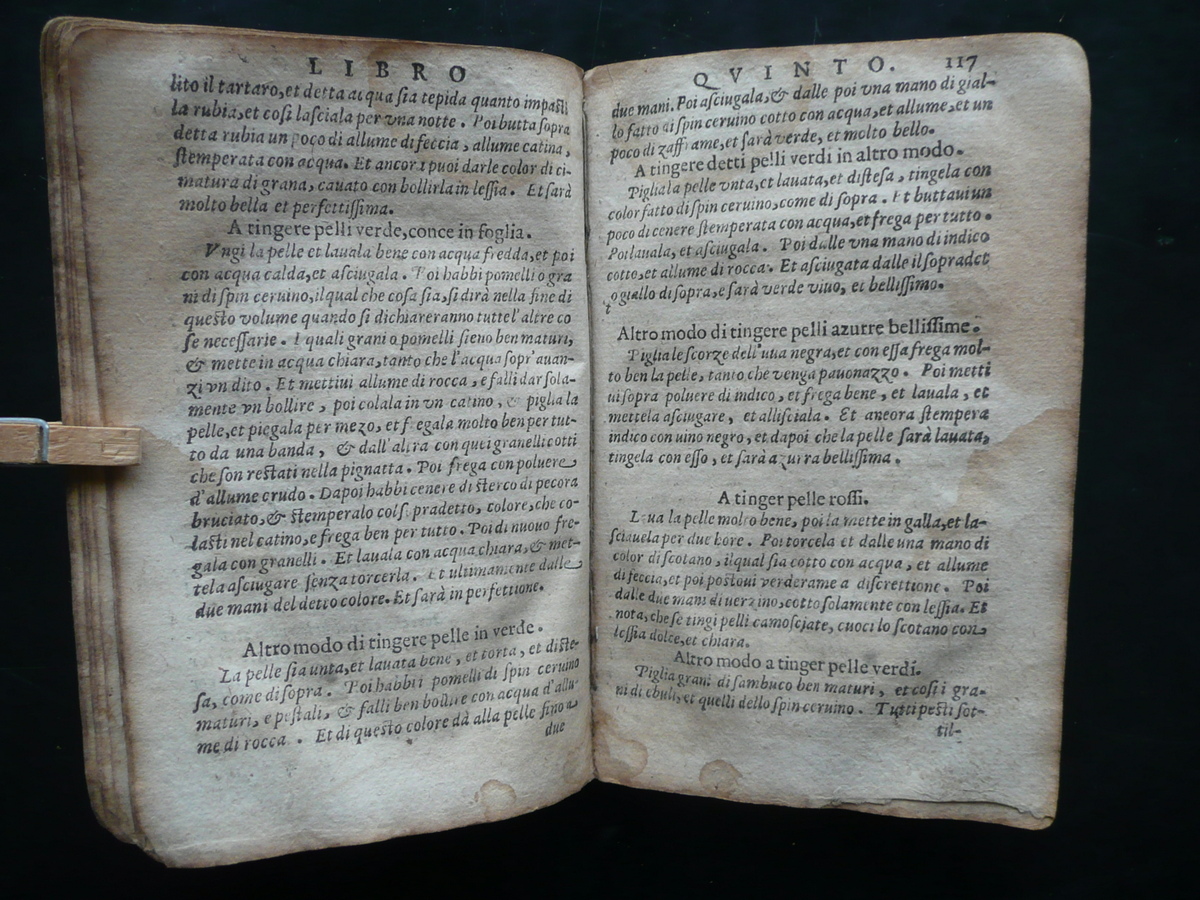 LIBRO
lito il tartaro, et detta acqua sia tepida quanto impasti
la rubia, et cosi lasciala per vna notte. Poi butta sopra
detta rubia un poco di allume di feccia, allume catina,
stemperata con acqua. Et ancora puoi darle color di ci-
matura di grana, cauato con bollirla in lessia. Et sarà
molto bella et perfettissima.
A tingere pelli verde, conce in foglia.
Vngi la pelle et lauala bene con acqua fredda, et poi
con acqua calda, et asciugala. Poi habbi pomelli o gra
ni di spin ceruino, il qual che cosa sia, si dirà nella fine di
questo volume quando si dichiareranno tutte l'altre co
se necessarie. I quali grani o pomelli sieno ben maturi,
& mette in acqua chiara, tanto che l'acqua sopr'auan-
zi vn dito. Et mettiui allume di rocca, e falli dar sola-
mente vn bollire, poi colala in vn catino, & piglia la
pelle, et piegala per mezo, et fregala molto ben per tut-
to da una banda, & dall'altra con quei granelli cotti
che son restati nella pignatta. Poi frega con poluere
d'allume crudo. Dapoi habbi cenere di sterco di pecora
bruciato, & stemperalo col sopradetto, colore, che co-
lasti nel catino, e frega ben per tutto. Poi di nuouo fre-
gala con granelli. Et lauala con acqua chiara, & met-
tela asciugare senza torcerla. Et ultimamente dalle
due mani del detto colore. Et sarà in perfettione.
Altro modo di tingere pelle in verde.
La pelle sia unta, et lauata bene, et torta, et diste-
sa, come di sopra. Poi habbi i pomelli di spin ceruino
maturi, e pestali, & falli ben bollire con acqua d'allu-
me di rocca. Et di questo colore dà alla pelle sino a
due
QVINTO. 117
due mani. Poi asciugala, & dalle poi vna mano di gial-
lo fatto di spin ceruino cotto con acqua, et allume, et un
poco di zafframe, et sarà verde, et molto bello.
A tingere detti pelli verdi in altro modo.
Piglia la pelle vnta, et lauata, et distesa, tingela con
color fatto di spin ceruino, come di sopra. Et buttaui un
poco di cenere stemperata con acqua, et frega per tutto.
Poi lauala, et asciugala. Poi dalle vna mano di indico
cotto, et allume di rocca. Et asciugata dalle il sopradet
to giallo di sopra, e sarà verde viuo, et bellissimo.
Altro modo di tingere pelli azurre bellissime.
Piglia le scorze dell'uua negra, et con essa frega mol-
to ben la pelle, tanto che venga pauonazzo. Poi metti
ui sopra poluere di indico, et frega bene, et lauala, et
mettela asciugare, et allisciala. Et ancora stempera
indico con uino negro, et dapoi che la pelle sarà lauata,
tingela con esso, et sarà azurra bellissima.
A tinger pelle rossi.
Laua la pelle molto bene, poi la mette in galla, et la-
sciauela per due hore. Poi torcela et dalle una mano di
color di scotano, il qual sia cotto con acqua, et allume
di feccia, et poi postoui verderame a discrettione. Poi
dalle due mani di uerzino, cotto solamente con lessia. Et
nota, che se tingi pelli camosciate, cuoci lo scotano con
lessia dolce, et chiara.
Altro modo a tinger pelle verdi.
Piglia grani di sambuco ben maturi, et cosi i gra-
ni di ebuli, et quelli dello spin ceruino. Tutti pesti sot-
til-